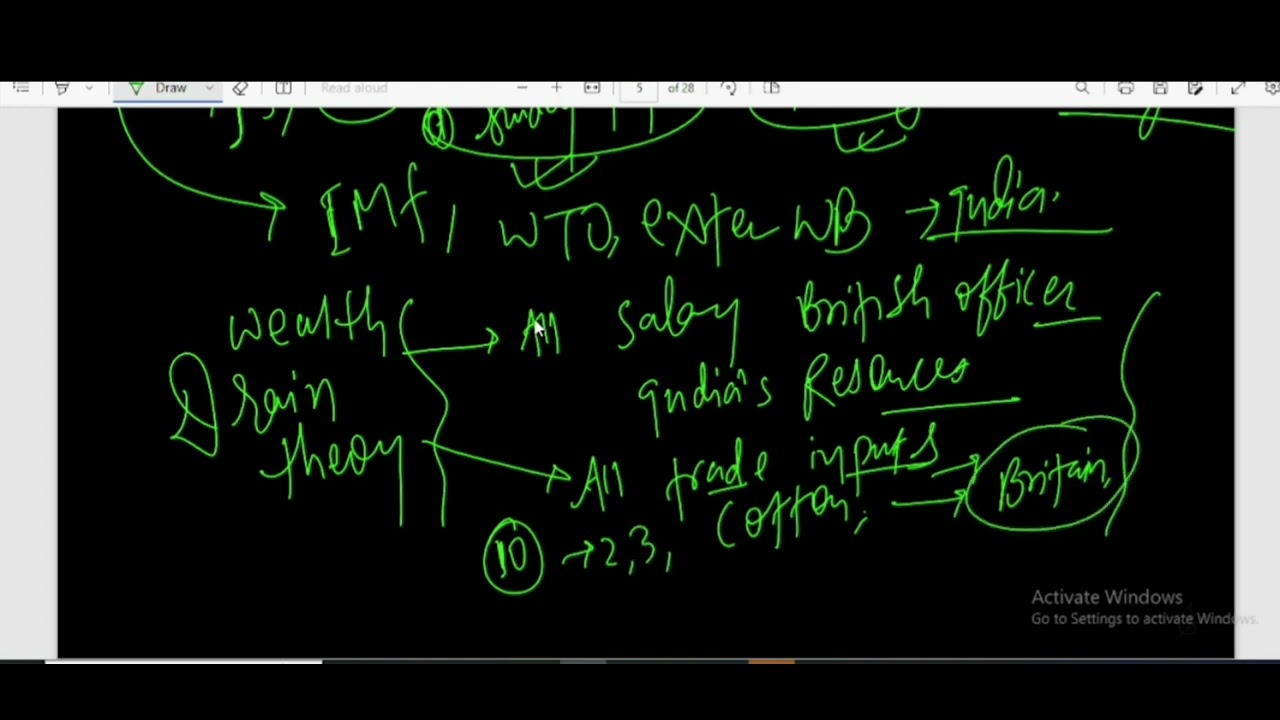 Draw
Read aloud
5 of 28
IMF, WTO, exter WB → India.
wealth → All salary British officer
Drain India's Resources
theory → All trade inputs → Britain,
cotton, →
10 → 2,3,
Activate Windows
Go to Settings to activate Windows.